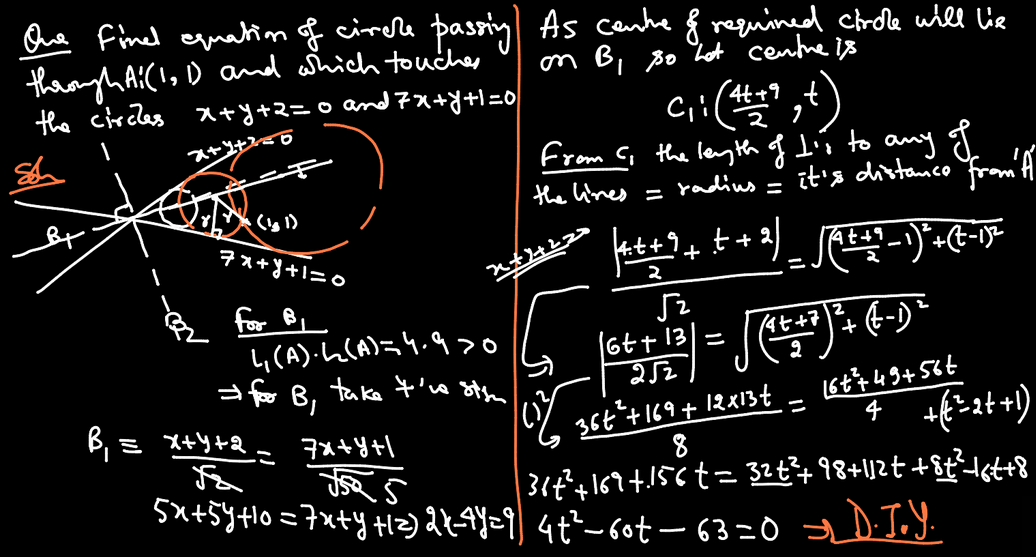 Que Find equation of circle passing
through A:(1,1) and which touches
the circles x+y+2=0 and 7x+y+1=0
Soln
x+y+2=0
B₁
r
r
(1,1)
7x+y+1=0
B₂
for B₁
L₁(A)·L₂(A)=4·9>0
⇒ for B₁ take +'ve sign
B₁ ≡ (x+y+2)/√2 = (7x+y+1)/√50 5
5x+5y+10=7x+y+1⇒2x-4y=9
As centre of required circle will lie
on B₁ so let centre is
C₁:((4t+9)/2, t)
From C₁ the length of ⊥'r to any of
the lines = radius = it's distance from 'A'
x+y+2
|(4t+9)/2 + t+2|/√2 = √(((4t+9)/2 -1)²+(t-1)²)
|(6t+13)/(2√2)| = √(((4t+7)/2)²+(t-1)²)
()² (36t²+169+12×13t)/8 = (16t²+49+56t)/4 +(t²-2t+1)
36t²+169+156t=32t²+98+112t+8t²-16t+8
4t²-60t-63=0 ⇒ D.I.Y.